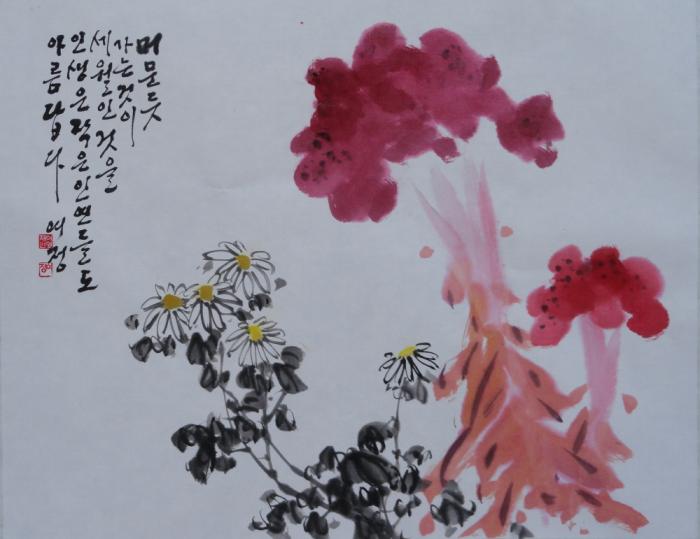 머문듯
가는것이
세월인것을
인생은작은인연들도
아름답다
여정